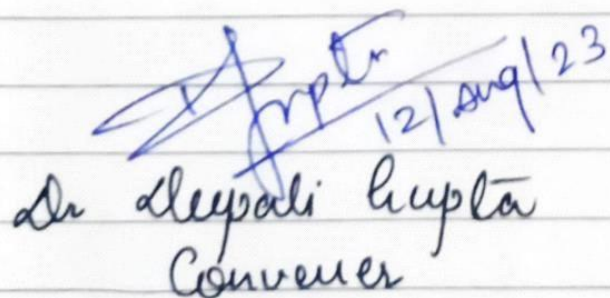 DGupta
12/Aug/23
Dr Deepali Gupta
Convener